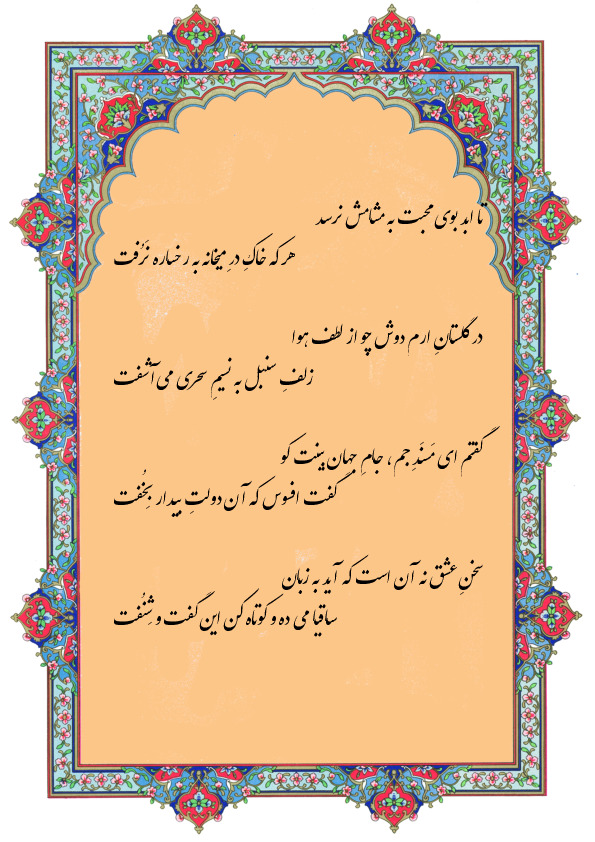 تا ابد بوی محبت به مشامش نرسد
هر که خاکِ درِ میخانه به رخساره نَرُفت
در گلستانِ ارم دوش چو از لطف هوا
زلفِ سنبل به نسیمِ سحری می‌آشفت
گفتم ای مَسنَدِ جم، جامِ جهان بینت کو
گفت افسوس که آن دولتِ بیدار بِخُفت
سخنِ عشق نه آن است که آید به زبان
ساقیا می ده و کوتاه کن این گفت و شِنُفت